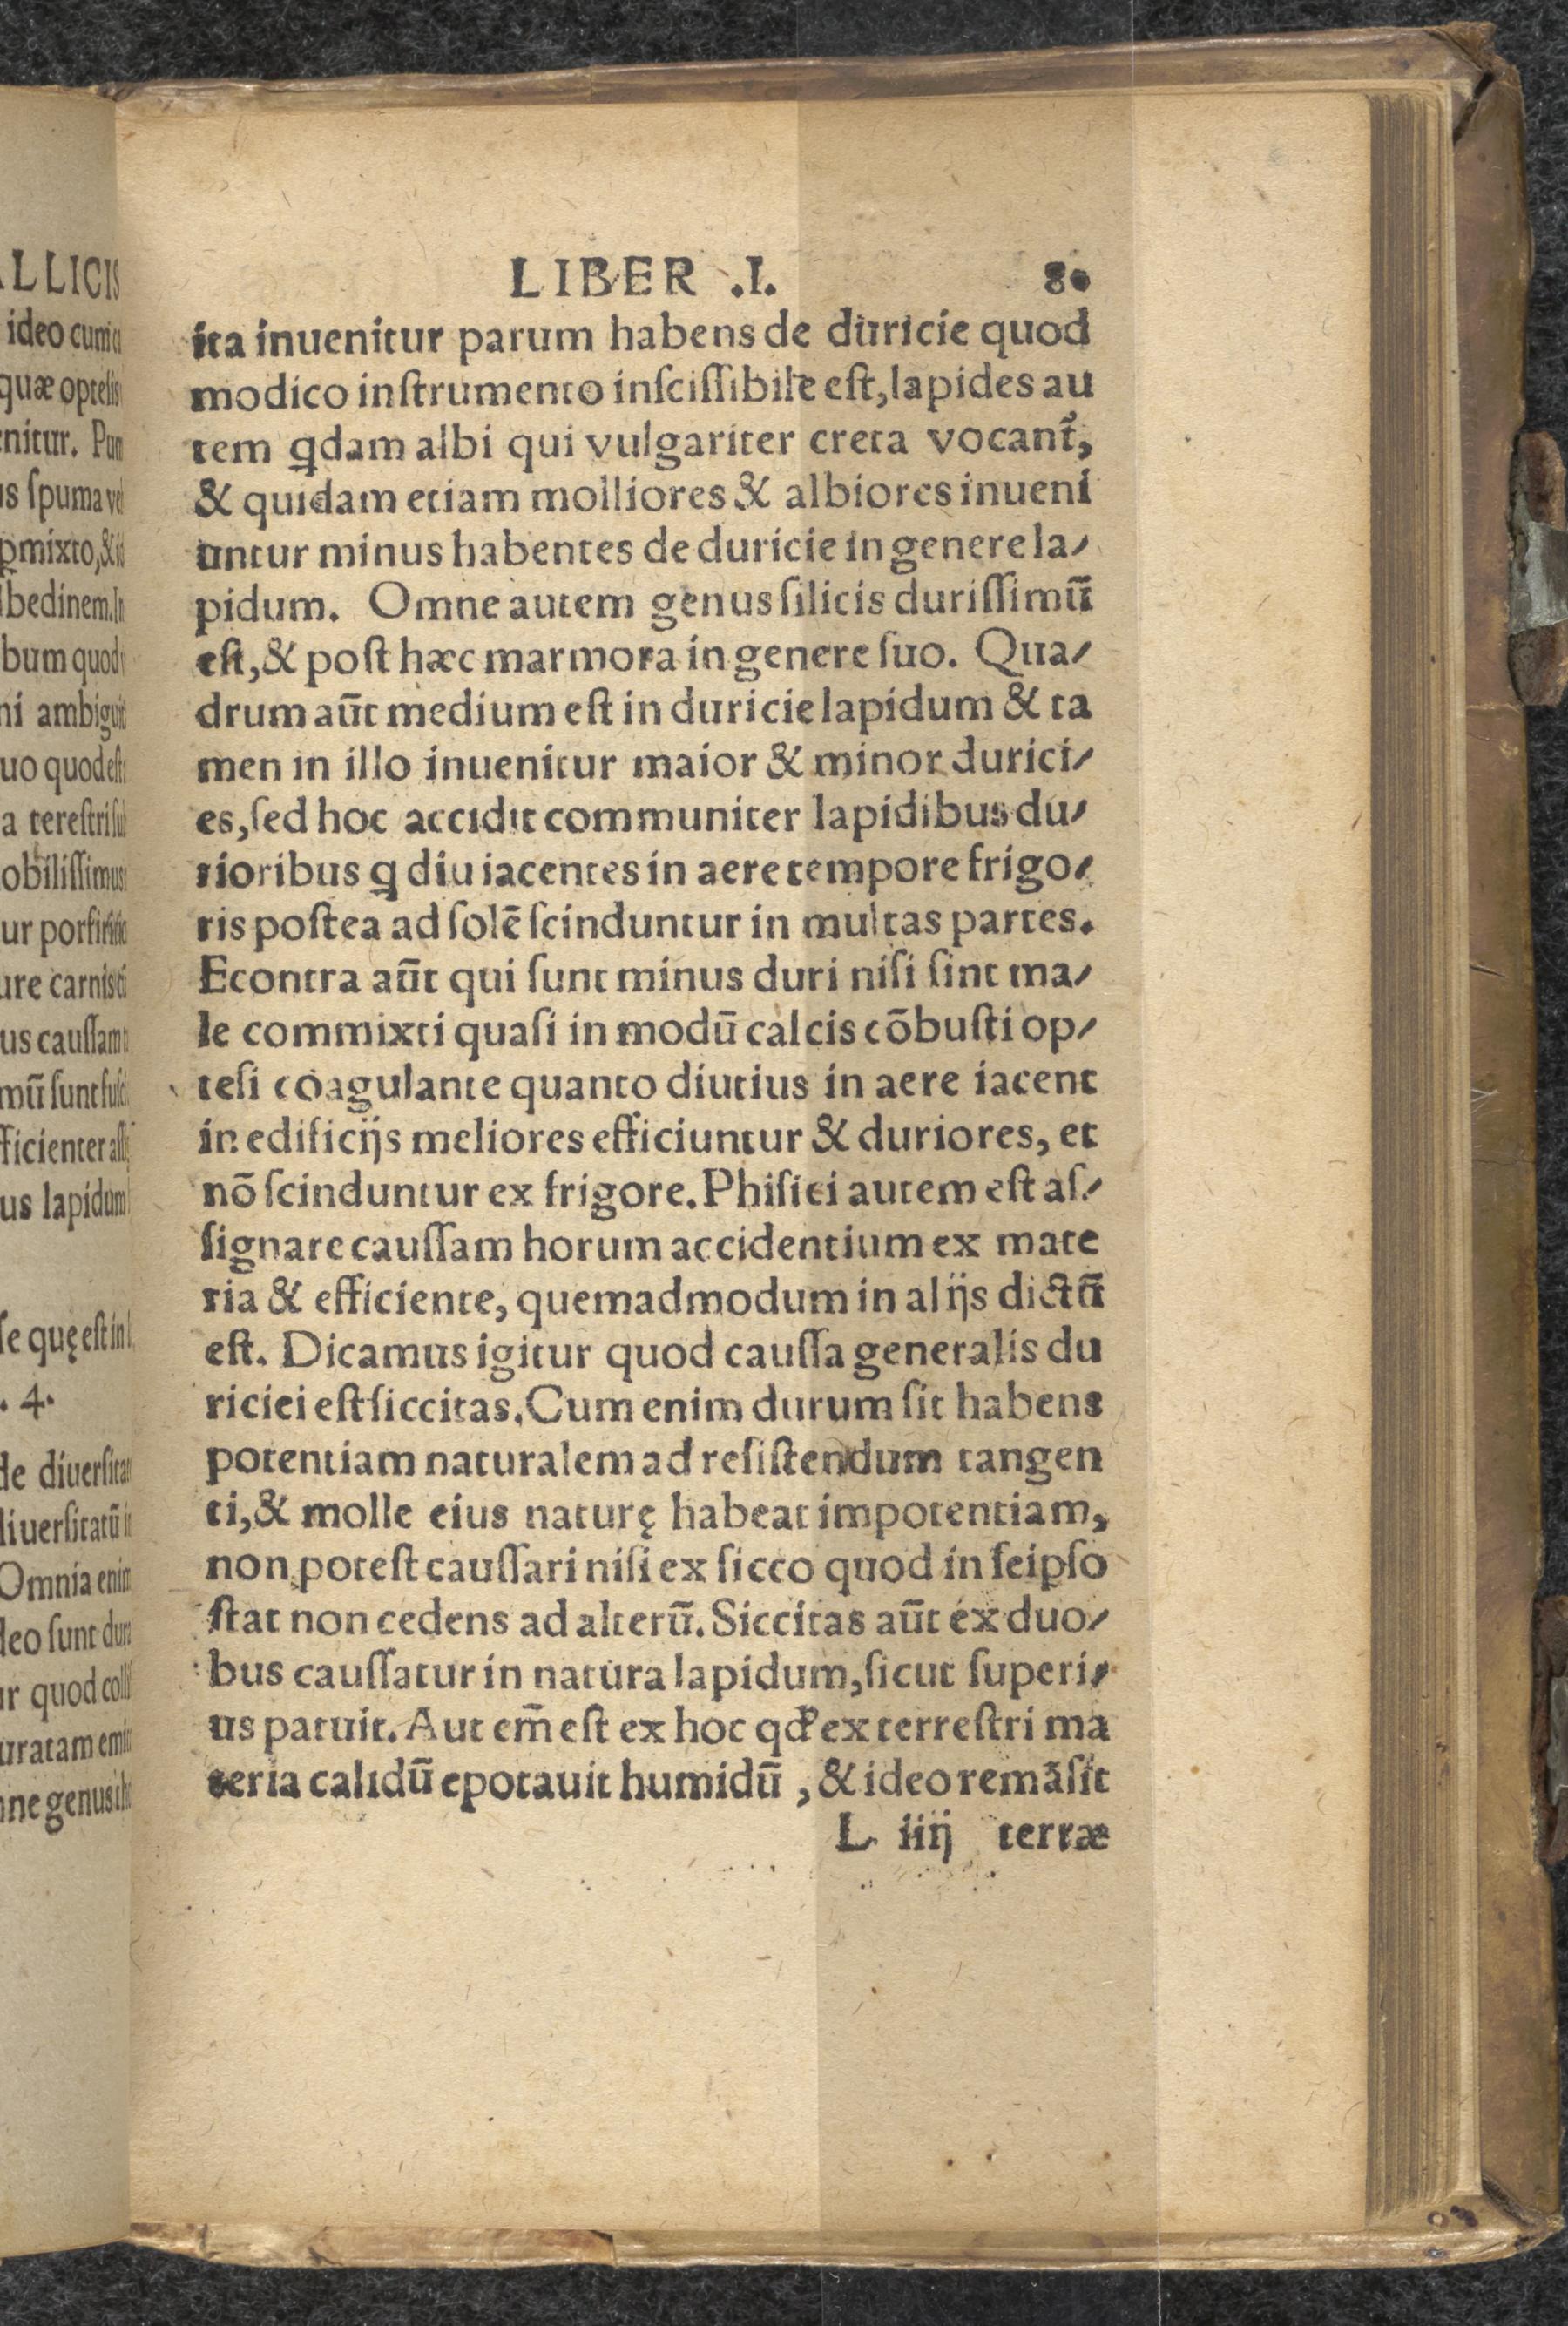 LIBER .I. 80
ita inuenitur parum habens de duricie quod
modico inſtrumento inſciſſibile eſt, lapides au
tem qdam albi qui vulgariter creta vocant᷑,
& quidam etiam molliores & albiores inueni
untur minus habentes de duricie in genere la/
pidum. Omne autem genus ſilicis duriſſimū
eſt, & poſt hæc marmora in genere ſuo. Qua/
drum aūt medium eſt in duricie lapidum & ta
men in illo inuenitur maior & minor durici/
es, ſed hoc accidit communiter lapidibus du/
rioribus ꝗ diu iacentes in aere tempore frigo/
ris poſtea ad ſolē ſcinduntur in multas partes.
Econtra aūt qui ſunt minus duri niſi ſint ma/
le commixti quaſi in modū calcis cōbuſti op/
teſi coagulante quanto diutius in aere iacent
in edificijs meliores efficiuntur & duriores, et
nō ſcinduntur ex frigore. Phiſici autem eſt aſ/
ſignare cauſſam horum accidentium ex mate
ria & efficiente, quemadmodum in alijs dictū
eſt. Dicamus igitur quod cauſſa generalis du
riciei eſt ſiccitas. Cum enim durum ſit habens
potentiam naturalem ad reſiſtendum tangen
ti, & molle eius naturę habeat impotentiam,
non poteſt cauſſari niſi ex ſicco quod in ſeipſo
ſtat non cedens ad alterū. Siccitas aūt ex duo/
bus cauſſatur in natura lapidum, ſicut ſuperi/
us patuit. Aut em̄ eſt ex hoc qđ ex terreſtri ma
teria calidū epotauit humidū, & ideo remāſit
L iiij terræ
ALLICIS
ideo cum
quæ opteſis
enitur.
us ſpuma vel
ꝑmixto, &
bedinem.
bum quod
ni
uo quod eſt
a tereſtri
obiliſſimus
ur
ure carnis
us cauſſam
mū ſunt
fficienter
us lapidum
ſe quę eſt in
. 4.
de
diuerſitatū
Omnia enim
deo ſunt dura
ur quod
uratam
ne genus